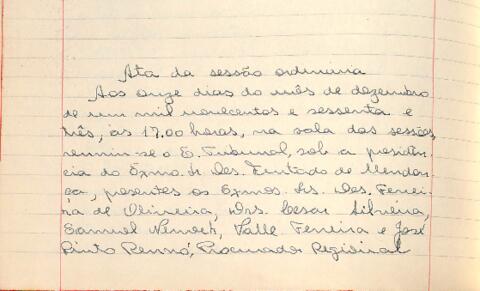 Ata da sessão ordinária
Aos onze dias do mês de dezembro
de um mil novecentos e sessenta e
três, às 17.00 horas, na sala das sessões,
reuniu-se o E. Tribunal, sob a presidên-
cia do Exmo. Sr. Des. Furtado de Mendon-
ça, presentes os Exmos. Srs. Des. Ferrei-
ra de Oliveira, Drs. Cesar Silveira,
Samuel Valle Ferreira e José
Pinto Rennó, Procurador Regional